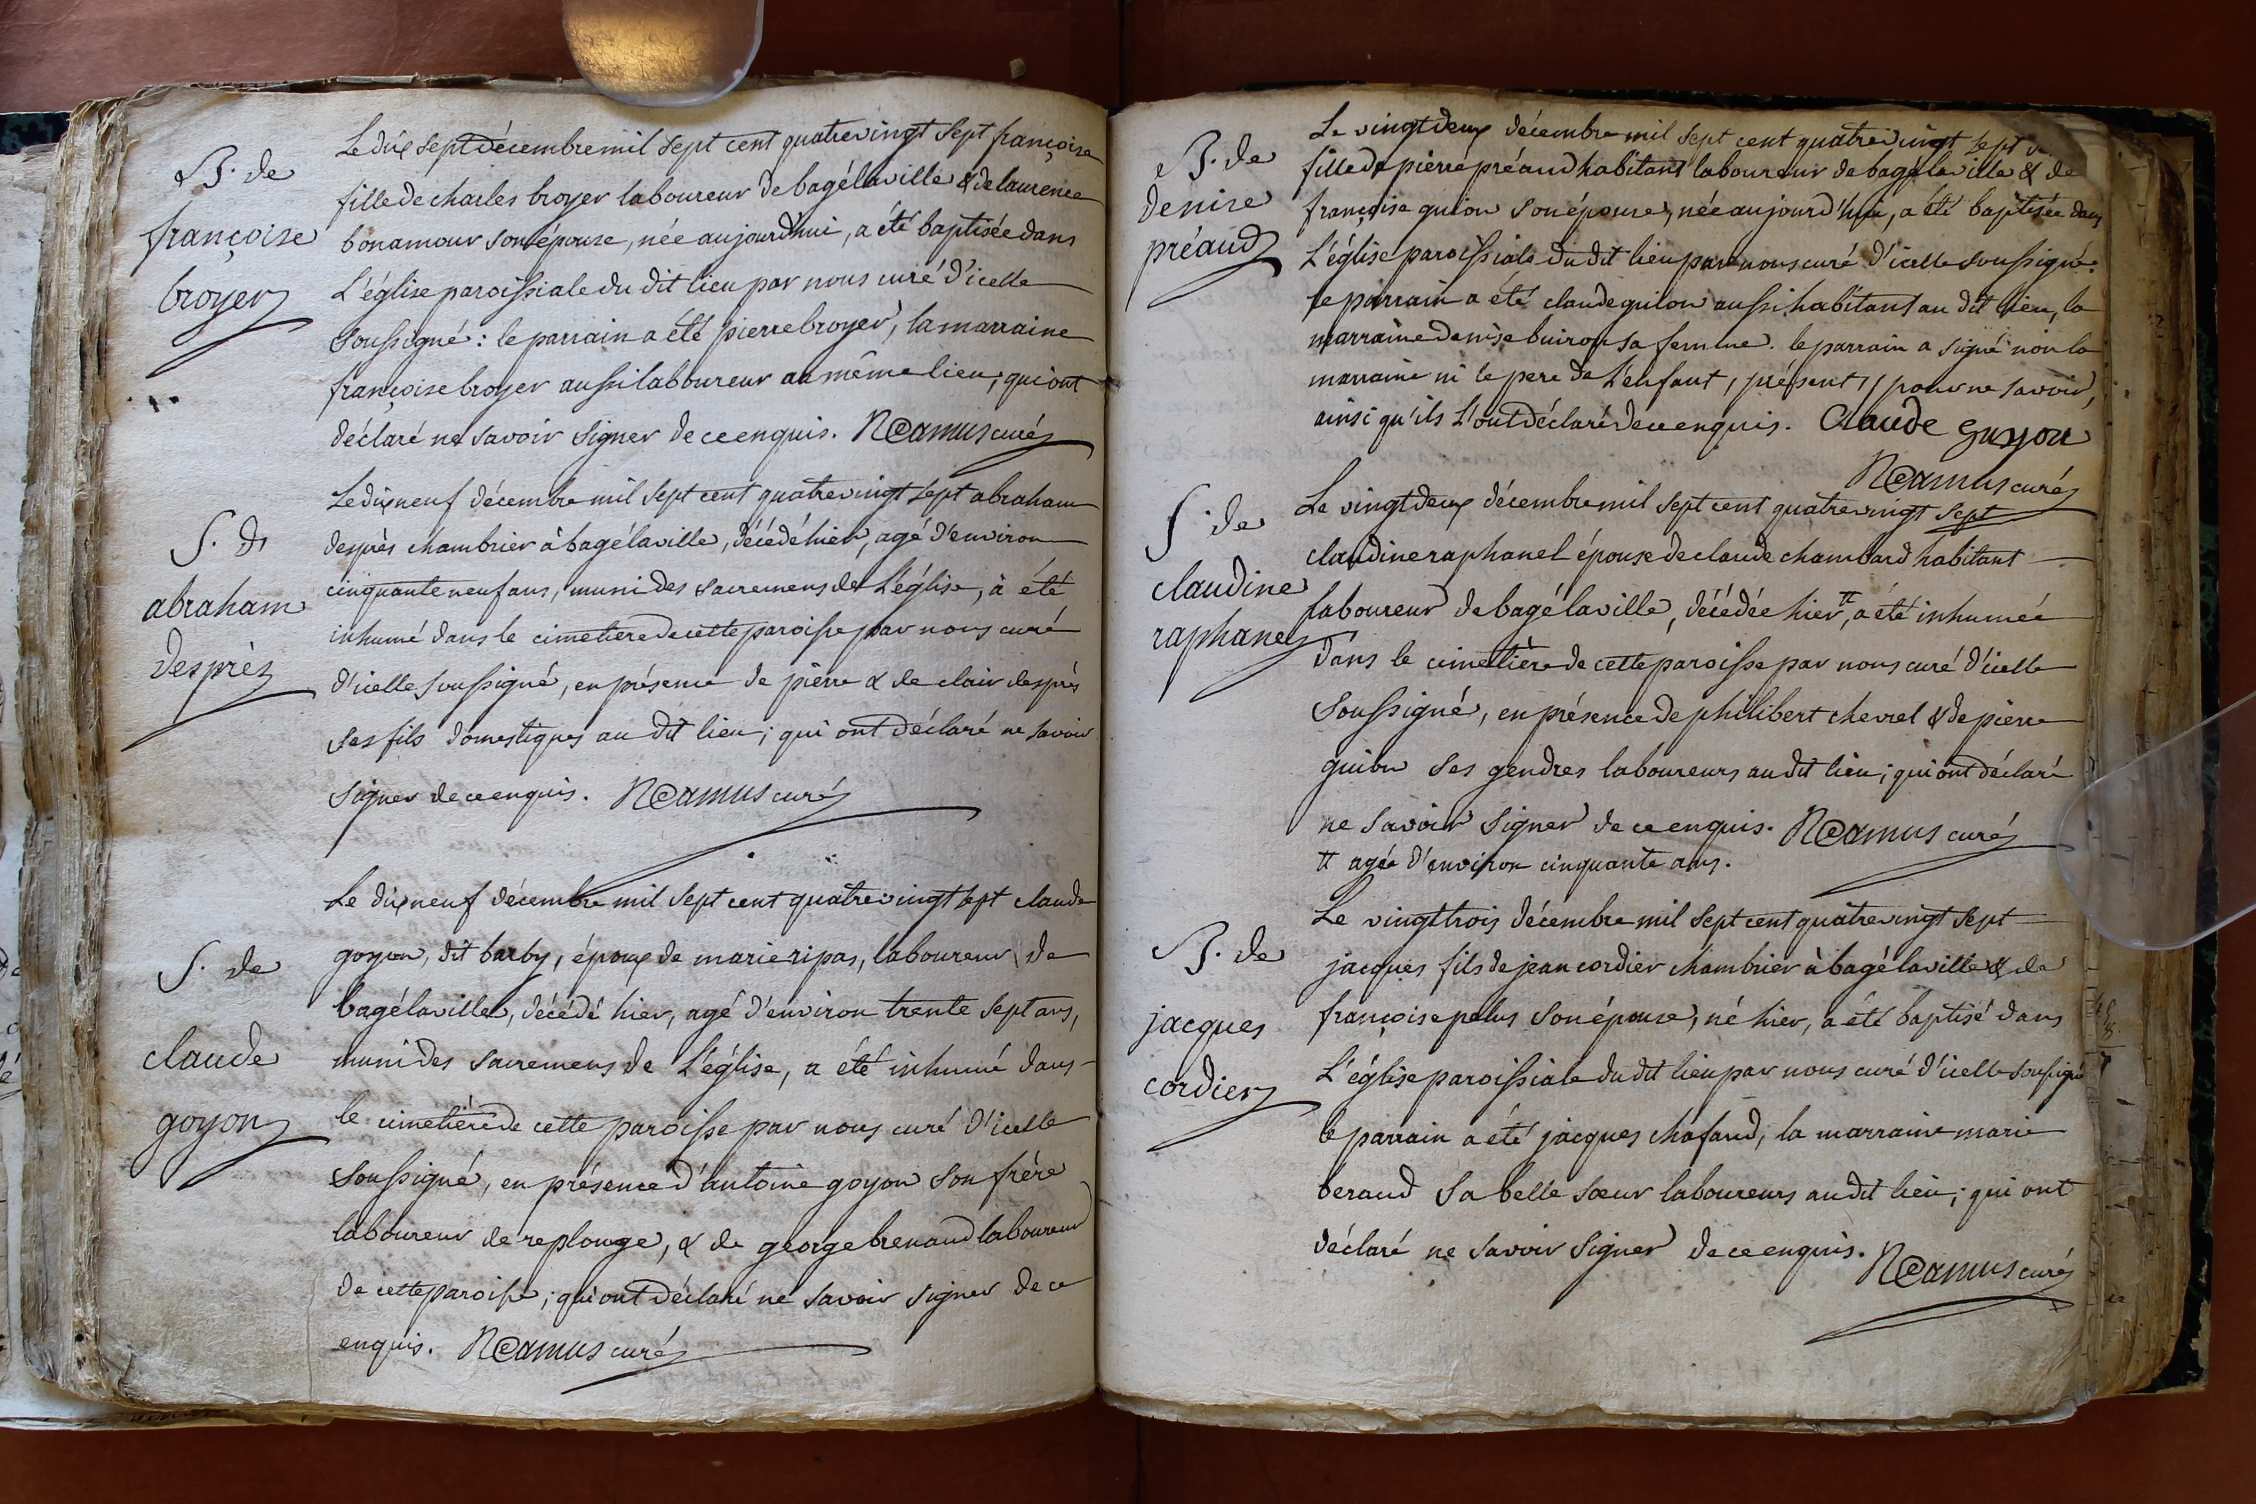 B. de
françoise
broyer
Le dix sept décembre mil sept cent quatrevingt sept françoise
fille de charles broyer laboureur de bagélaville & de laurence
bonamour son épouse, née aujourdhui, a été baptisée dans
L'église paroissiale du dit lieu par nous curé d'icelle
soussigné : le parrain a été pierre broyer, la marraine
françoise broyer aussi laboureur au même lieu, qui ont
déclaré ne savoir signer de ce enquis. N Camus curé
S. de
abraham
desprès
Le dix neuf décembre mil sept cent quatrevingt sept abraham
desprès chambrier à bagélaville, décédé hier, agé d'environ
cinquante neuf ans, muni des sacremens de L'église, à été
inhumé dans le cimetiere de cette paroisse par nous curé
d'icelle soussigné, en présence de pierre & de clair desprès
ses fils domestiques au dit lieu ; qui ont déclaré ne savoir
signer de ce enquis. N Camus curé
S. de
claude
goyon
Le dix neuf décembre mil sept cent quatrevingt sept claude
goyon, dit barby, époux de marie ripas, laboureur de
bagélaville, décédé hier, agé d'environ trente sept ans,
muni des sacremens de L'église, a été inhumé dans
le cimetière de cette paroisse par nous curé d'icelle
soussigné, en présence d'antoine goyon son frère
laboureur de replonge, & de george brenaud laboureur
de cette paroisse ; qui ont déclaré ne savoir signer de ce
enquis. N Camus curé
B. de
denise
préaud
Le vingt deux décembre mil sept cent quatrevingt sept
fille de pierre préaud habitant laboureur de bagélaville & de
françoise guion son épouse, née aujourd'hui, a été baptisée dans
L'église paroissiale du dit lieu par nous curé d'icelle soussigné :
le parrain a été claude guion aussi habitant au dit lieu, la
marraine denise buiron sa femme. le parrain a signé non la
marraine ni le pere de L'enfant, présent, pour ne savoir,
ainsi qu'ils L'ont déclaré de ce enquis. Claude guyon
N Camus curé
S. de
claudine
raphanel
Le vingt deux décembre mil sept cent quatrevingt sept
claudine raphanel épouse de claude chambard habitant
laboureur de bagélaville, décédée hier, # a été inhumée
dans le cimetière de cette paroisse par nous curé d'icelle
soussigné, en présence de philibert chevrel & de pierre
guion ses gendres laboureurs au dit lieu ; qui ont déclaré
ne savoir signer de ce enquis. N Camus curé
# agée d'environ cinquante ans.
B. de
jacques
cordier
Le vingt trois décembre mil sept cent quatrevingt sept
jacques fils de jean cordier chambrier à bagélaville & de
françoise pelus son épouse, né hier, a été baptisé dans
L'église paroissiale du dit lieu par nous curé d'icelle soussigné
le parrain a été jacques chafaud, la marraine marie
beraud sa belle sœur laboureurs au dit lieu ; qui ont
déclaré ne savoir signer de ce enquis.
N Camus curé